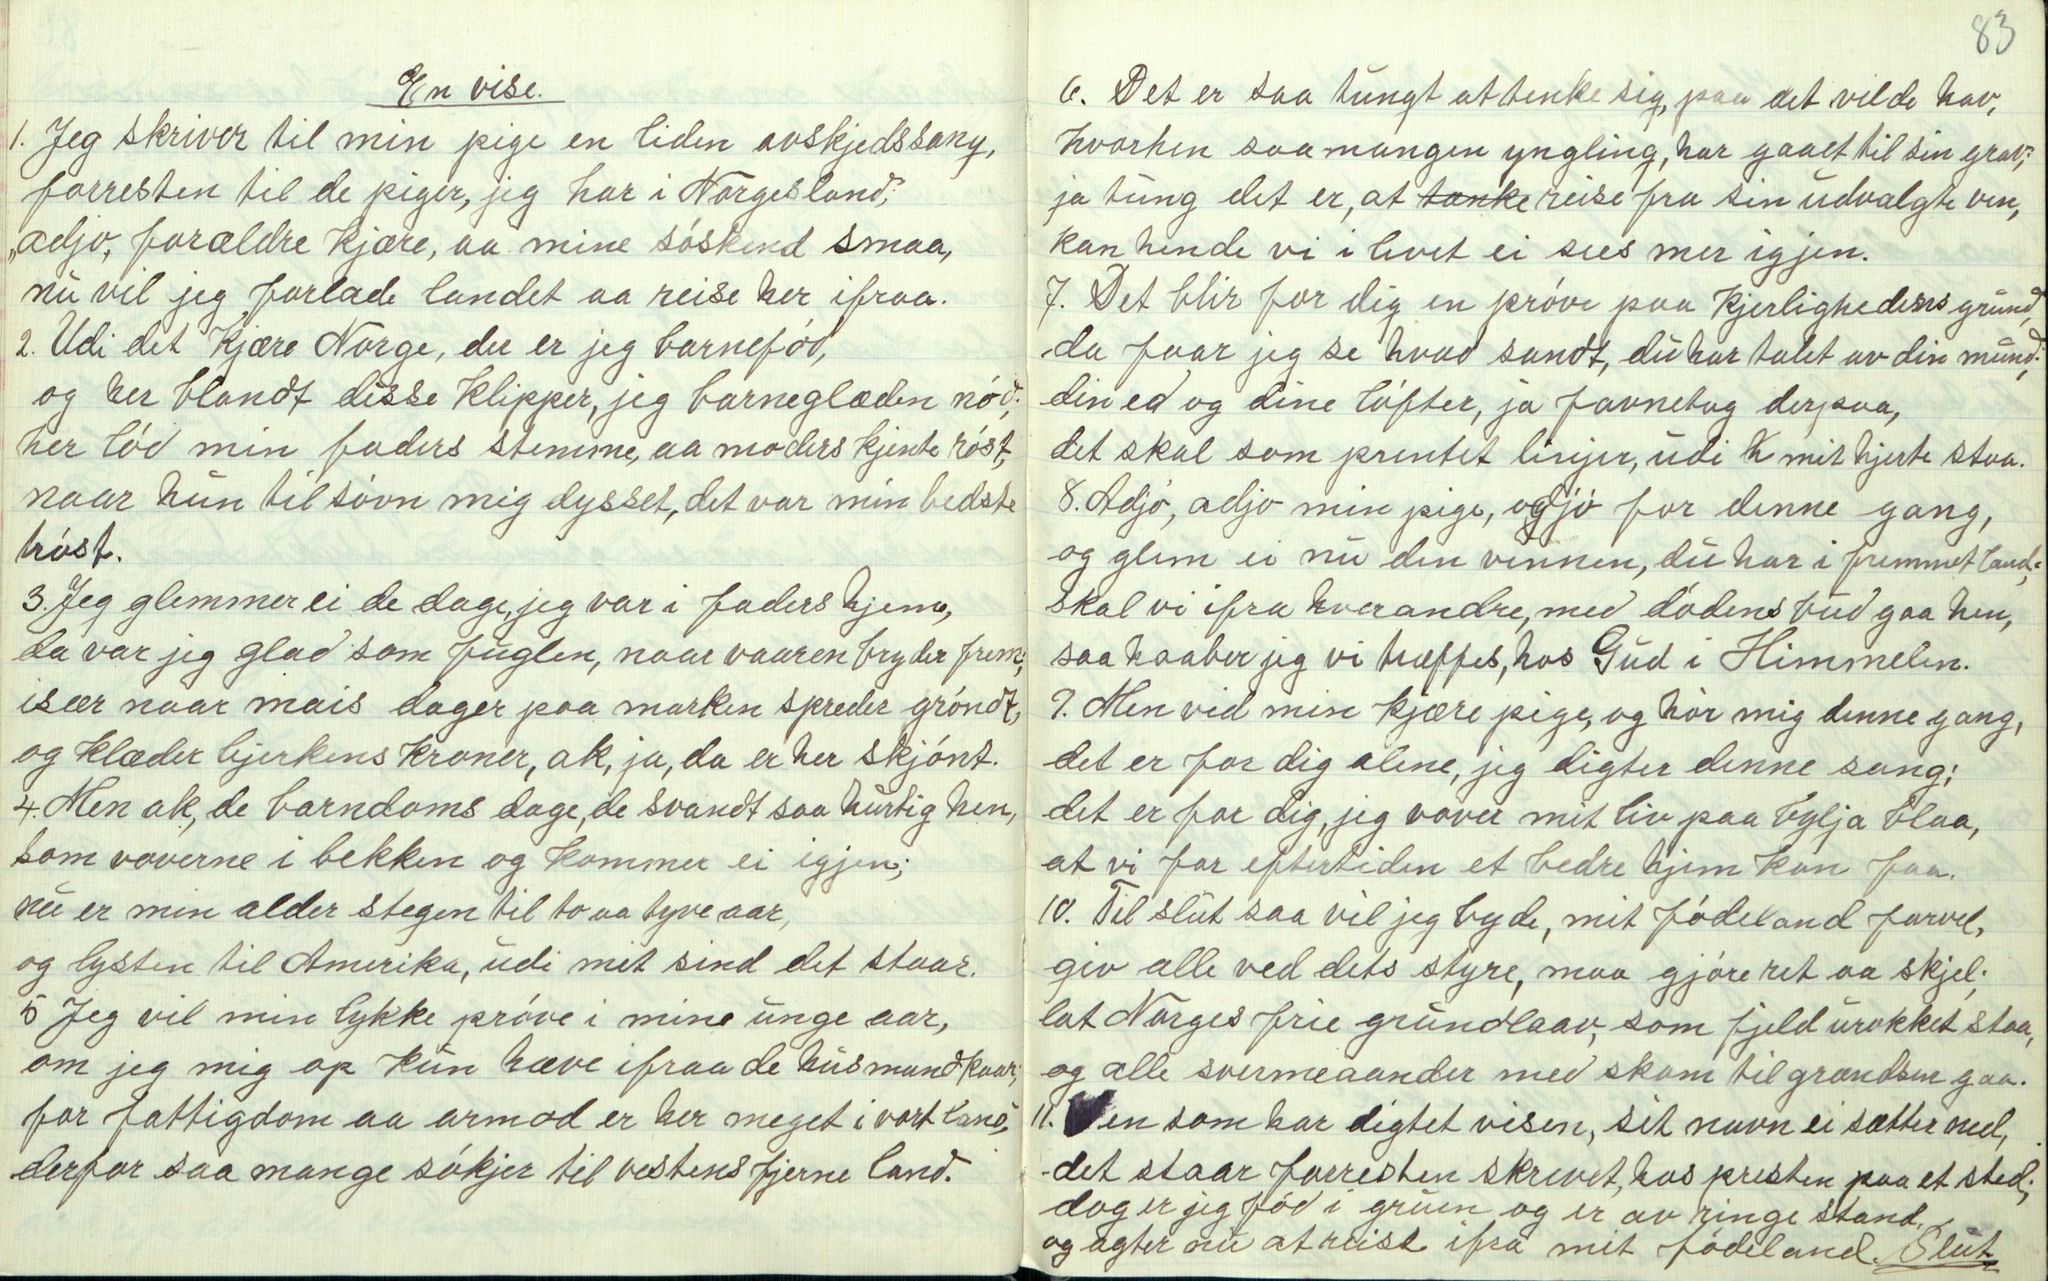 En vise.
1. Jeg skriver til min pige en liden avskjedssang,
forresten til de piger, jeg har i Norgesland;
"adjø, forældre kjære, aa mine søskend smaa,
nu vil jeg forlade landet aa reise her ifraa.
2. Udi det kjære Norge, der er jeg barnefød,
og her blandt disse klipper, jeg barneglæden nød;
her lød min faders stemme, aa moders kjente røst,
naar hun til søvn mig dysset, det var min bedste
trøst.
3. Jeg glemmer ei de dage, jeg var i faders hjem,
da var jeg glad som fuglen, naar vaaren bryder frem;
især naar mais dager paa marken spreder grøndt,
og klæder bjerkens kroner, ak, ja, da er her skjønt.
4. Men ak, de barndoms dage, de svandt saa hurtig hen,
som voverne i bekken og kommer ei igjen;
nu er min alder stegen til to aa tyve aar,
og lysten til Amerika, udi mit sind det staar.
5 Jeg vil min lykke prøve i mine unge aar,
om jeg mig op kun hæve ifraa de husmandkaar;
for fattigdom aa armod er her meget i vort land,
derfor saa mange søkjer til vestens fjerne land.
83
6. Det er saa tungt at tenke sig, paa det vilde hav,
hvorhen saamangen yngling, har gaaet til sin grav;
ja tung det er, at tanke reise fra sin udvalgte ven,
kan hende vi i livet ei sees mer igjen.
7. Det blir for dig en prøve paa kjerlighedens grund,
da faar jeg se hvad sandt, du har talet av din mund;
din ed og dine løfter, ja favnetag derpaa,
det skal som prentet linjer, udi h mit hjerte staa.
8. Adjø, adjø min pige, adjø for denne gang,
og glem ei nu den vennen, du har i fremmet land;
skal vi ifra hverandre, med dødens bud gaa hen,
saa haaber jeg vi træffes, hos Gud i Himmelen.
9. Men vid min kjære pige, og hør mig denne gang,
det er for dig alene, jeg digter denne sang;
det er for dig, jeg vover mit liv paa bylja blaa,
at vi for eftertiden et bedre hjem kan faa.
10. Til slut saa vil jeg byde, mit fødeland farvel,
giv alle ved dets styre, maa gjøre ret aa skjel;
lat Norges frie grundlaav, som fjeld urokket staa,
og alle svermeaander med skam til grændsen gaa.
11. Den som har digtet visen, sit navn ei sætter ned,
det staar forresten skrevet, hos presten paa et sted;
dog er jeg fød i gruen og er av ringe stand,
og agter nu at reise ifra mit fødeland. Slut